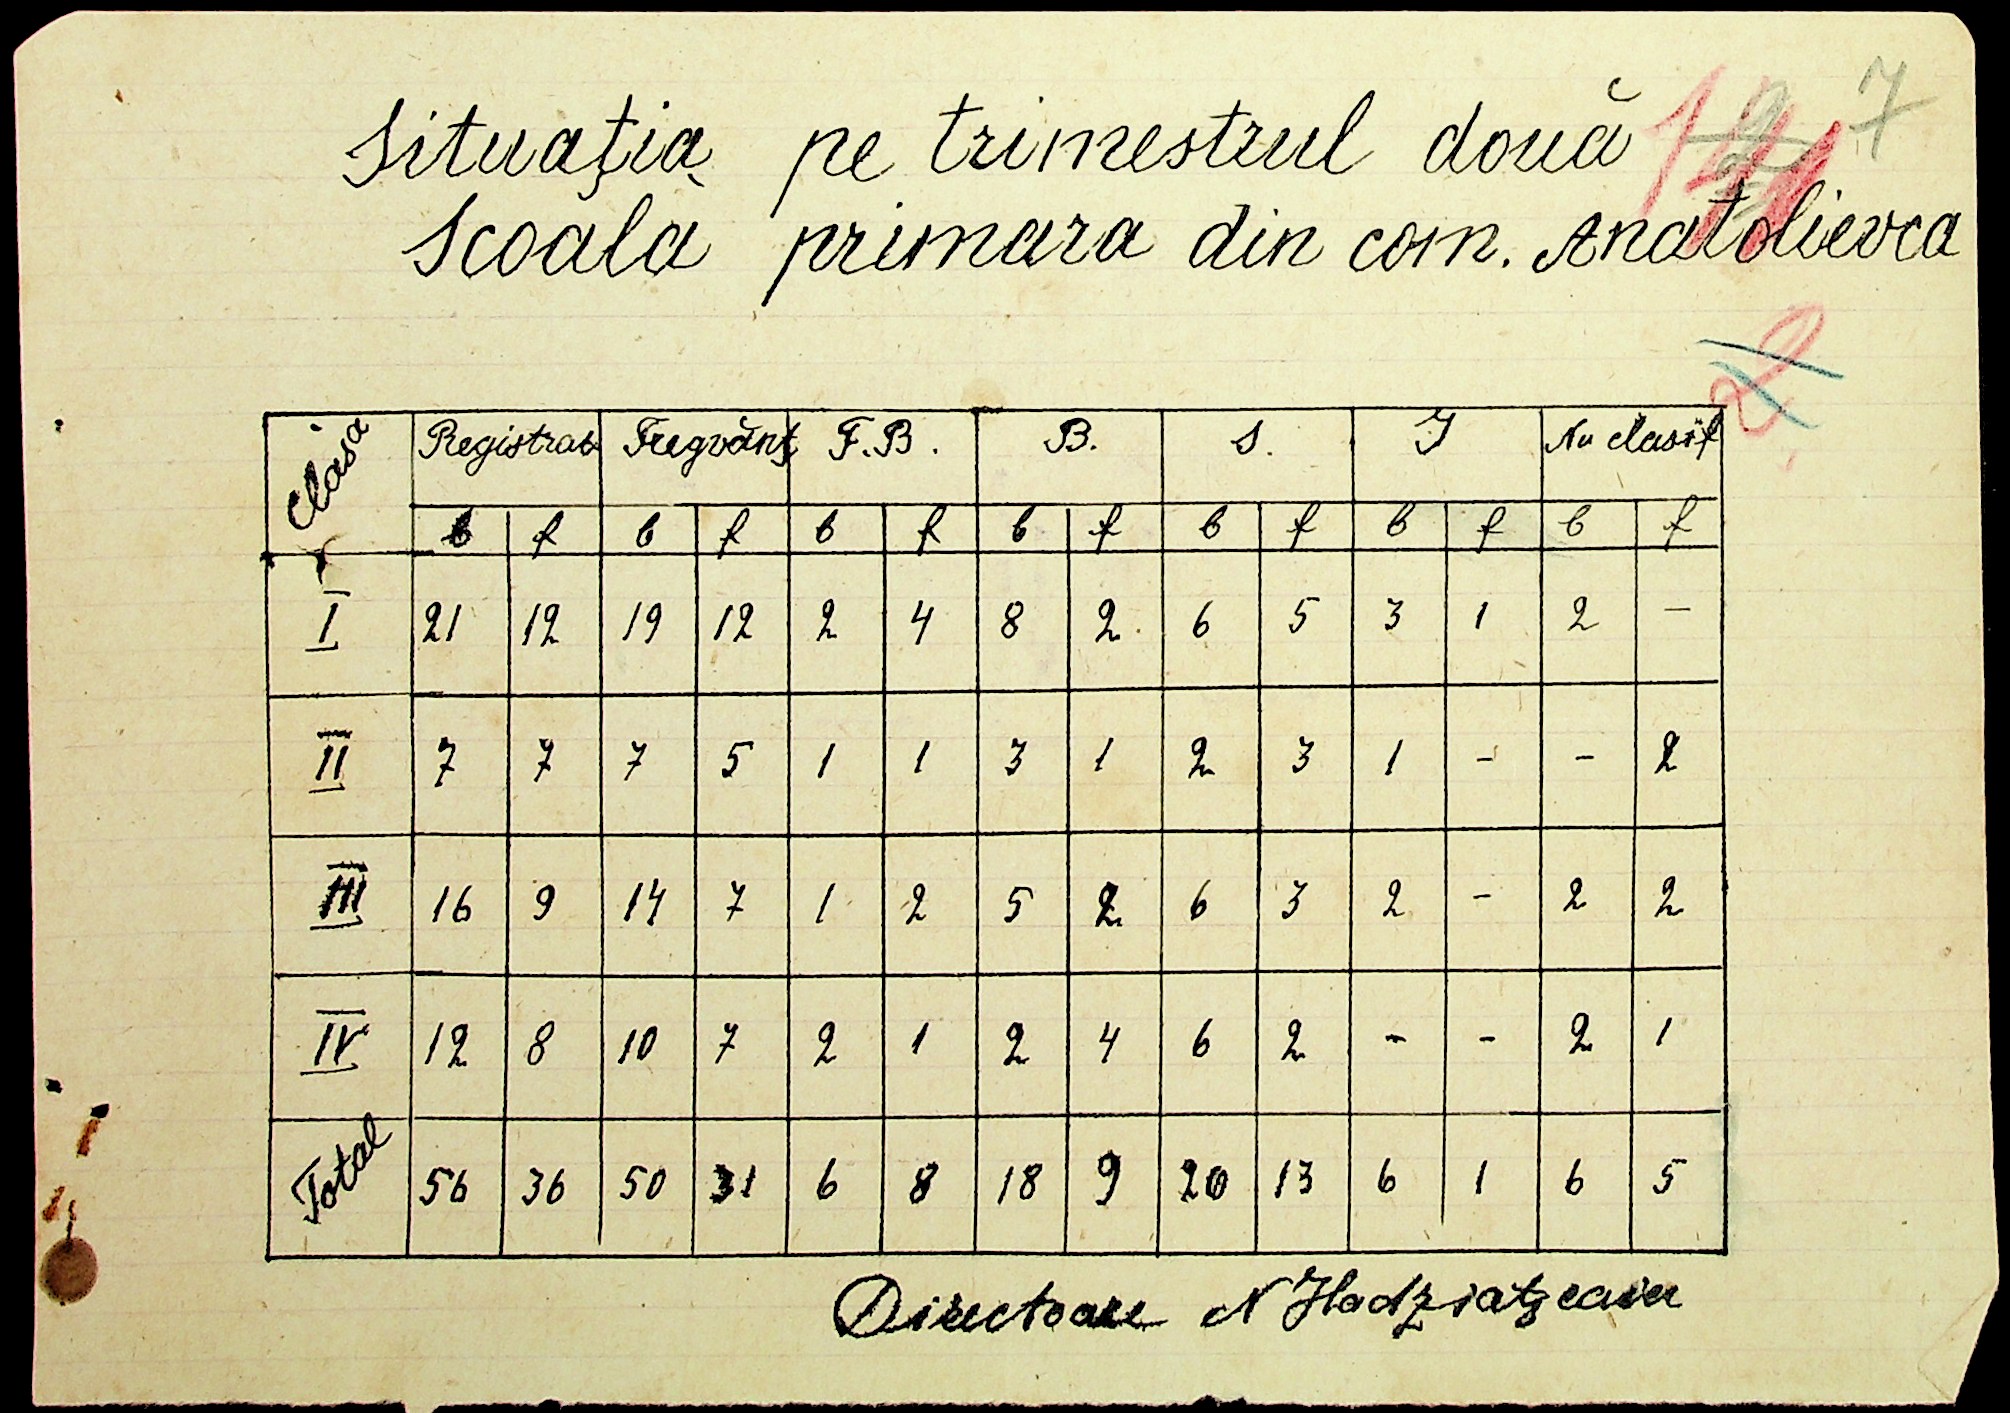 Situația pe trimestrul două
7
Scoală primara din com. Anatolievca
2
Clasa Registrat Fregvânț F.B. B. S. I Nu clasif
b f b f b f b f b f b f b f
I 21 12 19 12 2 4 8 2 6 5 3 1 2 –
II 7 7 7 5 1 1 3 1 2 3 1 – – 2
III 16 9 14 7 1 2 5 2 6 3 2 – 2 2
IV 12 8 10 7 2 1 2 4 6 2 – – 2 1
Total 56 36 50 31 6 8 18 9 20 13 6 1 6 5
Directoare N